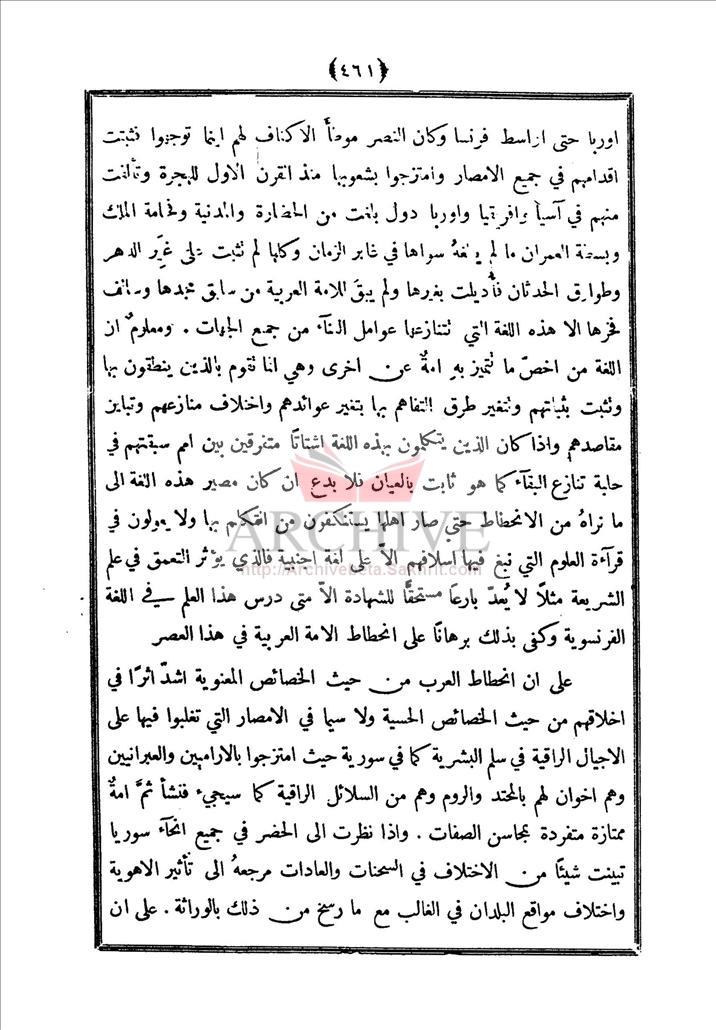 (٤٦١)
اوربا حتى اواسط فرنسا وكان النصر موطأ الاكناف لهم اينما توجهوا فثبتت
اقدامهم في جميع الامصار وامتزجوا بشعوبها منذ القرن الاول للهجرة وتألفت
منهم في آسيا وافريقيا واوربا دول بلغت من الحضارة والمدنية وفخامة الملك
وبسطة العمران ما لم يبلغهُ سواها في غابر الزمان وكلها لم تثبت على غِيَر الدهر
وطوارق الحدثان فأُديلت بغيرها ولم يبقَ للامة العربية من سابق مجدها وسالف
فخرها الا هذه اللغة التي تتنازعها عوامل الفنآء من جميع الجهات . ومعلومٌ ان
اللغة من اخصّ ما تتميز بهِ امةٌ عن اخرى وهي انما تقوم بالذين ينطقون بها
وتثبت بثباتهم وتتغير طرق التفاهم بها بتغير عوائدهم واختلاف منازعهم وتباين
مقاصدهم واذا كان الذين يتكلمون بهذه اللغة اشتاتًا متفرقين بين امم سبقتهم في
حلبة تنازع البقآء كما هو ثابت بالعيان فلا بدع ان كان مصير هذه اللغة الى
ما نراهُ من الانحطاط حتى صار اهلها يستنكفون من التكلم بها ولا يعولون في
قرآءة العلوم التي نبغ فيها اسلافهم الاّ على لغة اجنبية فالذي يؤثر التعمق في علم
الشريعة مثلًا لا يُعدّ بارعًا مستحقًّا للشهادة الاّ متى درس هذا العلم في اللغة
الفرنسوية وكفى بذلك برهانًا على انحطاط الامة العربية في هذا العصر
على ان انحطاط العرب من حيث الخصائص المعنوية اشدّ اثرًا في
اخلاقهم من حيث الخصائص الحسية ولا سيما في الامصار التي تغلبوا فيها على
الاجيال الراقية في سلم البشرية كما في سورية حيث امتزجوا بالاراميين والعبرانيين
وهم اخوان لهم بالمحتد والروم وهم من السلائل الراقية كما سيجيء فنشأ ثمَّ امةٌ
ممتازة متفردة بمحاسن الصفات . واذا نظرت الى الحضر في جميع انحآء سوريا
تبينت شيئًا من الاختلاف في السحنات والعادات مرجعهُ الى تأثير الاهوية
واختلاف مواقع البلدان في الغالب مع ما رسخ من ذلك بالوراثة . على ان
ARCHIVE
http://Archivebeta.Sakhrit.com